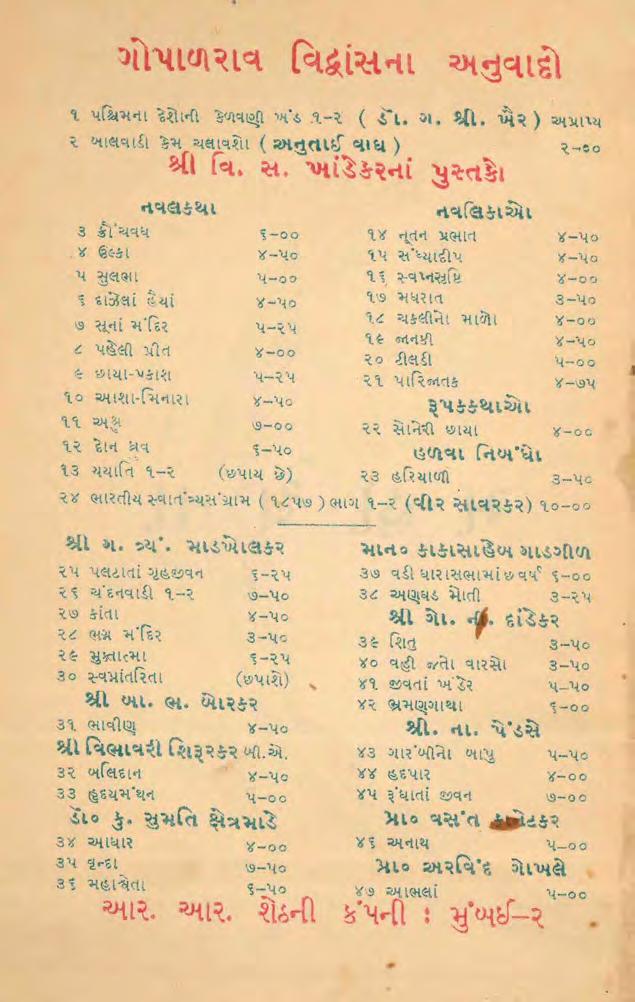 ગોપાળરાવ વિદ્વાંસના અનુવાદો
૧ પશ્ચિમના દેશોની કેળવણી ખંડ ૧–૨ ( ડૉ. ગ. શ્રી. ખૈર ) અપ્રાપ્ય
૨ બાલવાડી કેમ ચલાવશો ( અનુતાઈ વાઘ ) ૨–૦૦
શ્રી વિ. સ. ખાંડેકરનાં પુસ્તકો
નવલકથા
૩ ક્રૌંચવધ ૬–૦૦
૪ ઉલ્કા ૪–૫૦
૫ સુલભા ૫–૦૦
૬ દાઝેલાં હૈયાં ૪–૫૦
૭ સૂનાં મંદિર ૫–૨૫
૮ પહેલી પ્રીત ૪–૦૦
૯ છાયા-પ્રકાશ ૫–૨૫
૧૦ આશા-મિનારા ૪–૫૦
૧૧ અશ્રુ ૭–૦૦
૧૨ દોન ધ્રુવ ૬–૫૦
૧૩ યયાતિ ૧–૨ (છપાય છે)
નવલિકાઓ
૧૪ નૂતન પ્રભાત ૪–૫૦
૧૫ સંધ્યાદીપ ૪–૫૦
૧૬ સ્વપ્નસૃષ્ટિ ૪–૦૦
૧૭ મધરાત ૩–૫૦
૧૮ ચકલીનો માળો ૪–૦૦
૧૯ જાનકી ૪–૫૦
૨૦ ટીલડી ૫–૦૦
૨૧ પારિજાતક ૪–૭૫
રૂપકકથાઓ
૨૨ સોનેરી છાયા ૪–૦૦
હળવા નિબંધો
૨૩ હરિયાળી ૩–૫૦
૨૪ ભારતીય સ્વાતંત્ર્યસંગ્રામ ( ૧૮૫૭ ) ભાગ ૧–૨ (વીર સાવરકર) ૧૦–૦૦
શ્રી ગ. ત્ર્યં. માડખોલકર
૨૫ પલટાતાં ગૃહજીવન ૬–૨૫
૨૬ ચંદનવાડી ૧–૨ ૭–૫૦
૨૭ કાંતા ૪–૫૦
૨૮ ભગ્ન મંદિર ૩–૫૦
૨૯ મુક્તાત્મા ૬–૨૫
૩૦ સ્વપ્નાંતરિતા (છપાશે)
શ્રી બા. ભ. બોરકર
૩૧ ભાવીણ ૪–૫૦
શ્રી વિભાવરી શિરૂરકર બી.એ.
૩૨ બલિદાન ૪–૫૦
૩૩ હૃદયમંથન ૫–૦૦
ડૉ૦ કુ. સુમતિ ક્ષેત્રમાડે
૩૪ આધાર ૪–૦૦
૩૫ વૃન્દા ૭–૫૦
૩૬ મહાશ્વેતા ૬–૫૦
માન૦ કાકાસાહેબ ગાડગીળ
૩૭ વડી ધારાસભામાં છ વર્ષ ૬–૦૦
૩૮ અણઘડ મોતી ૩–૨૫
શ્રી ગો. ની. દાંડેકર
૩૯ શિતુ ૩–૫૦
૪૦ વહી જતો વારસો ૩–૫૦
૪૧ જીવતાં ખંડેર ૫–૫૦
૪૨ ભ્રમણગાથા ૬–૦૦
શ્રી. ના. પેંડસે
૪૩ ગારંબીનો બાપુ ૫–૫૦
૪૪ હદપાર ૪–૦૦
૪૫ રૂંધાતાં જીવન ૭–૦૦
પ્રા૦ વસંત
૪૬ અનાથ ૫–૦૦
પ્રા૦ અરવિંદ ગોખલે
૪૭ આભલાં ૫–૦૦
આર. આર. શેઠની કંપની : મુંબઈ–૨